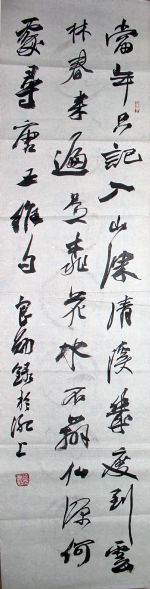 當年只記入山深清溪幾度到雲
林春来遍是桃花水不辨仙源何
處尋 唐王維句 良 錄於沪上